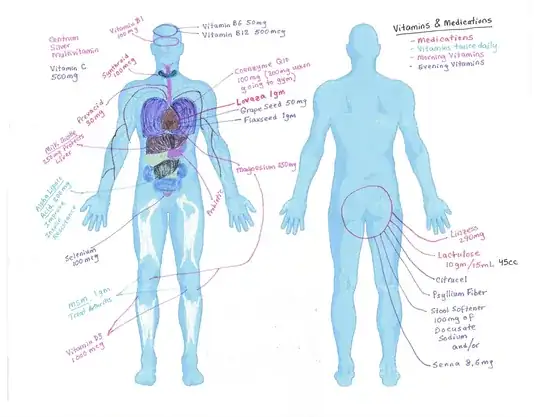 Centrum
Silver
Multivitamin
Vitamin C
500mg
Vitamin B1
100 mg
Vitamin B6 50mg
Vitamin B12 500mcg
Synthroid
100mcg
Prevacid
30mg
Coenzyme Q10
100mg (200mg when
going to gym)
Lovaza 1gm
Grape Seed 50mg
Flaxseed 1gm
Milk Thistle
Liver
Magnesium 250mg
Alpha Lipoic
Acid
Improve
Insulin
Resistance
Probiotic
Selenium
100mcg
MSM 1gm
Treat Arthritis
Vitamin D3
1000 mcg
Vitamins & Medications
- Medications
- Vitamins twice daily
- Morning Vitamins
- Evening Vitamins
Linzess
290mg
Lactulose
10gm/15mL 45cc
Citracel
Psyllium Fiber
Stool Softener
100mg of
Docusate
Sodium
and/or
Senna 8.6mg